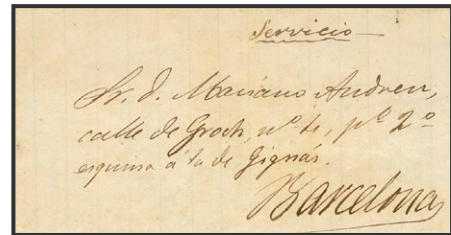 Servicio
Sr. D. Mariano Andreu,
calle de Groch, nº 4, pº 2º
esquina á la de Gignás.
Barcelona